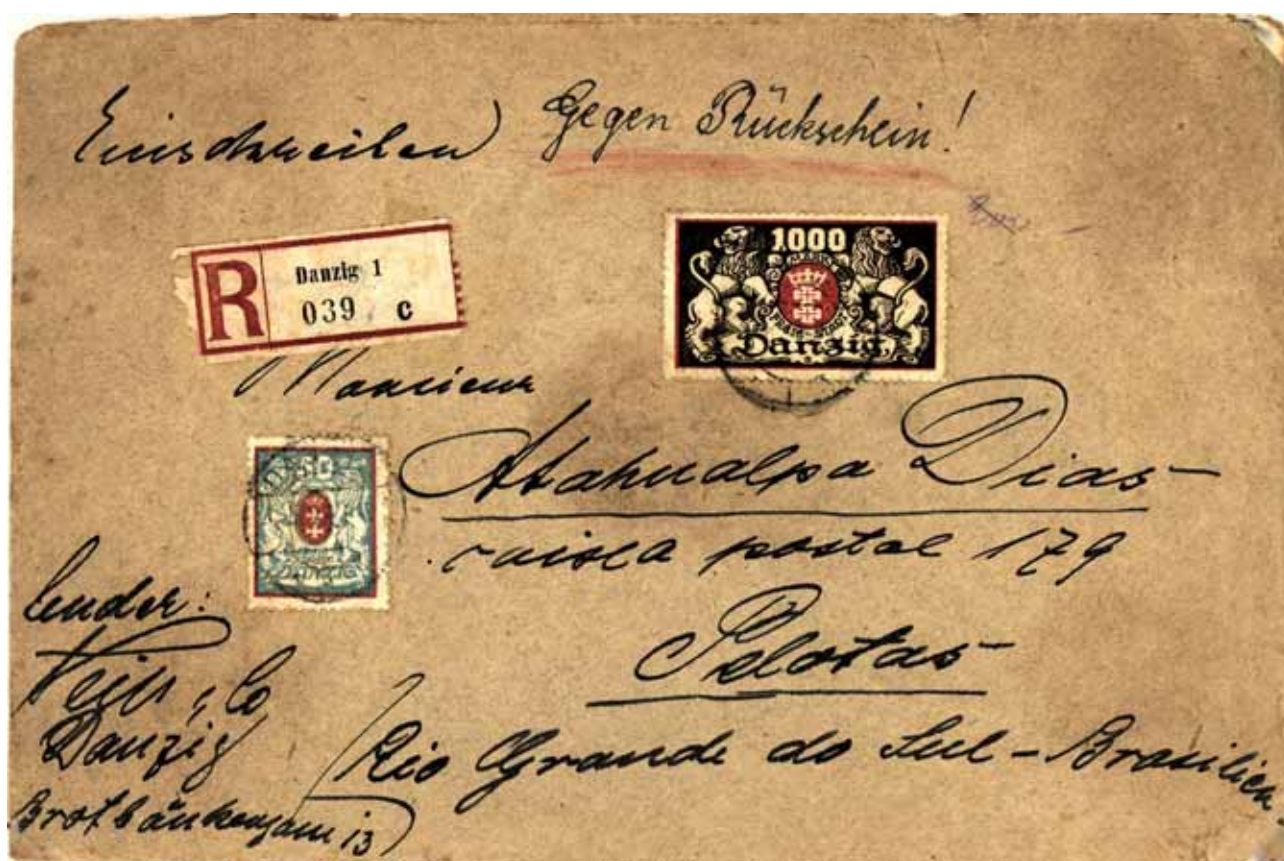 Einschreiben Gegen Rückschein!
R Danzig 1
039 c
1000
Danzig
Monsieur
50
DANZIG
Atahualpa Dias
caixa postal 179
Pelotas
Rio Grande do Sul - Brasilien
Sender:
& Co
Danzig
Brotbänkengasse 13